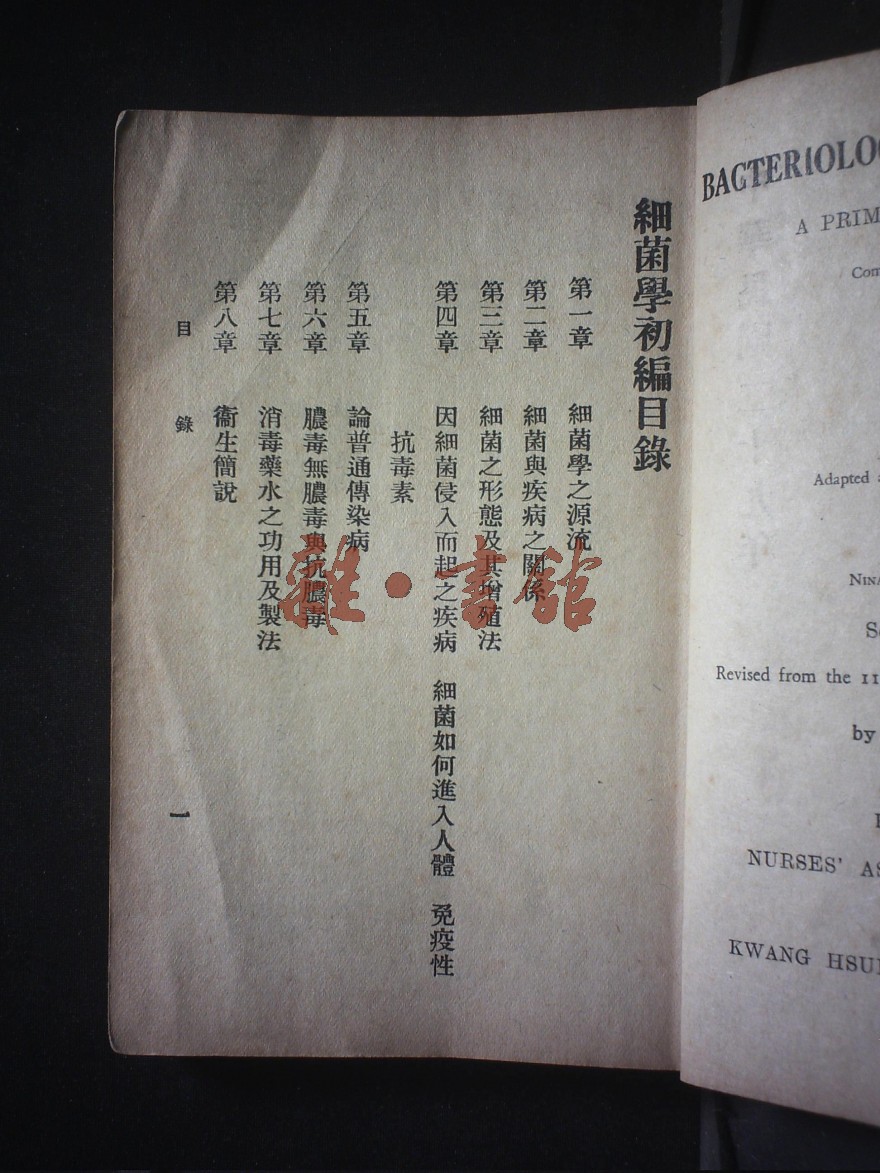 細菌學初編目錄
第一章 細菌學之源流
第二章 細菌與疾病之關係
第三章 細菌之形態及其增殖法
第四章 因細菌侵入而起之疾病 細菌如何進入人體 免疫性
抗毒素
第五章 論普通傳染病
第六章 膿毒無膿毒與抗膿毒
第七章 消毒藥水之功用及製法
第八章 衞生簡說
目錄 一
雜·書館
BACTERIOLOG
A PRIM
Com
Adapted
NINA
Revised from the 11
by
NURSES' AS
KWANG HSU